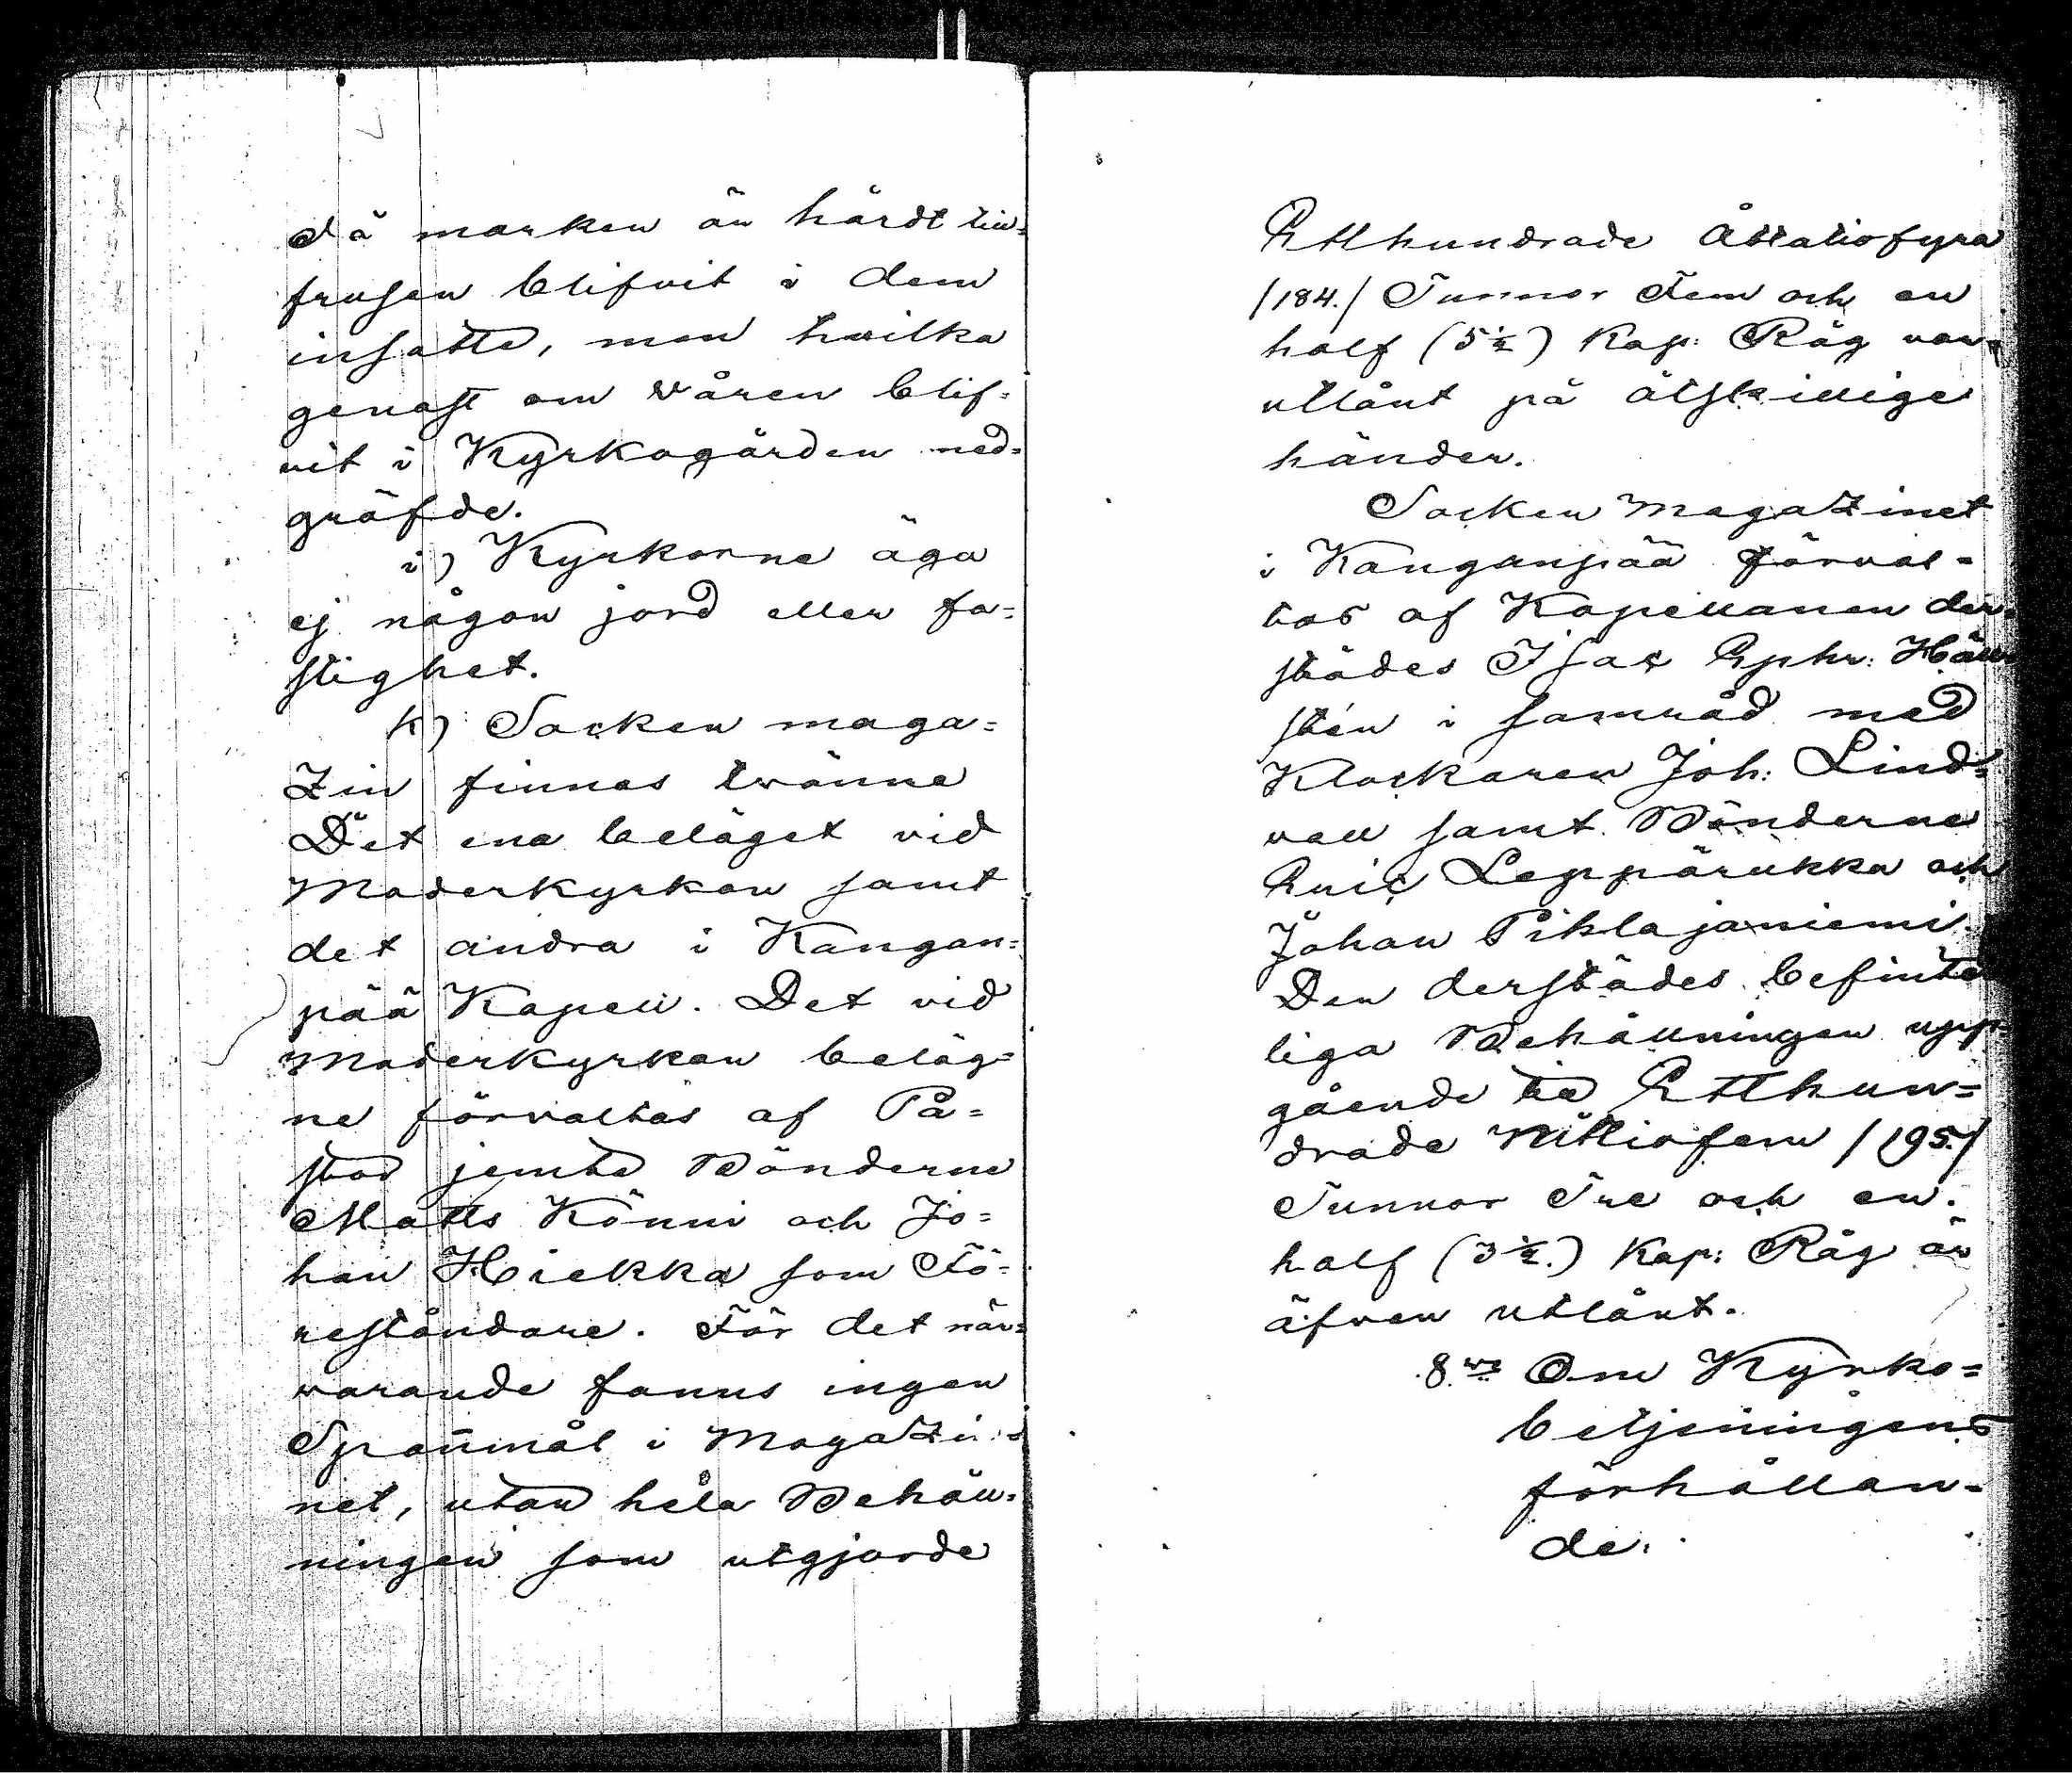 då marken är hårdt till-
frusen blifvit i dem
insatte, men hvilka
genast om våren blif-
vit i Kyrkogården ned-
gräfde.
i) Kyrkorne äga
ej någon jord eller fa-
stighet.
k) Socken maga-
Zin finnas tvänne
Det ena beläget vid
Moderkyrkan samt
det andra i Kangan-
pää Kapell. Det vid
Moderkyrkan beläg-
ne förvaltas af Pa-
stor jemte Bönderne
Matts Könni och Jo-
han Hiekka som Fö-
reståndare. För det när-
warande fanns ingen
Spanmål i MagaZi-
net, utan hela Behåll-
ningen som utgjorde
Etthundrade Åttatiofyra
/184./ Tunnor Fem och en
half (5½) Kap: Råg var
utlånt på åtskillige
händer.
Socken MagaZinet
i Kanganpää förval-
tas af Kapellanen der-
städes Isac Ephr: Häll-
stén i samråd med
Klockaren Joh: Lind-
vall samt Bönderne
Eric Leppärukka och
Johan Pihlajaniemi.
Den derstädes befint-
liga Behållningen upp-
gående till Etthun-
drade Nittiofem /195./
Tunnor Tre och en
half (3½.) Kap: Råg är
äfven utlånt.
8:vo Om Kyrko-
betjeningens
förhållan-
de.